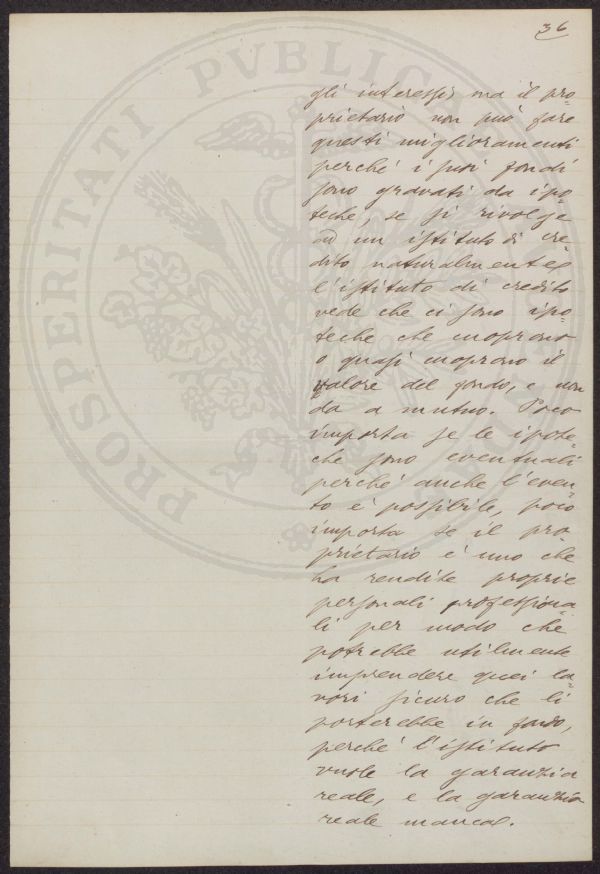 36
gli interessi ma il pro=
prietario non può fare
questi miglioramenti
perché i suoi fondi
sono gravati da ipo=
teche, se si rivolge
ad un istituto di cre=
dito naturalmente
l'istituto di credito
vede che ci sono ipo=
teche che cuoprono
o quasi cuoprono il
valore del fondo, e non
da a mutuo. Poco
importa se le ipote=
che sono eventuali
perché anche l'even=
to è possibile, poco
importa se il pro=
prietario è uno che
ha rendite proprie
personali professiona=
li per modo che
potrebbe utilmente
imprendere quei la=
vori sicuro che li
porterebbe in fondo,
perché l'istituto
vuole la garanzia
reale, e la garanzia
reale manca.
PROSPERITATI PVBLICAE